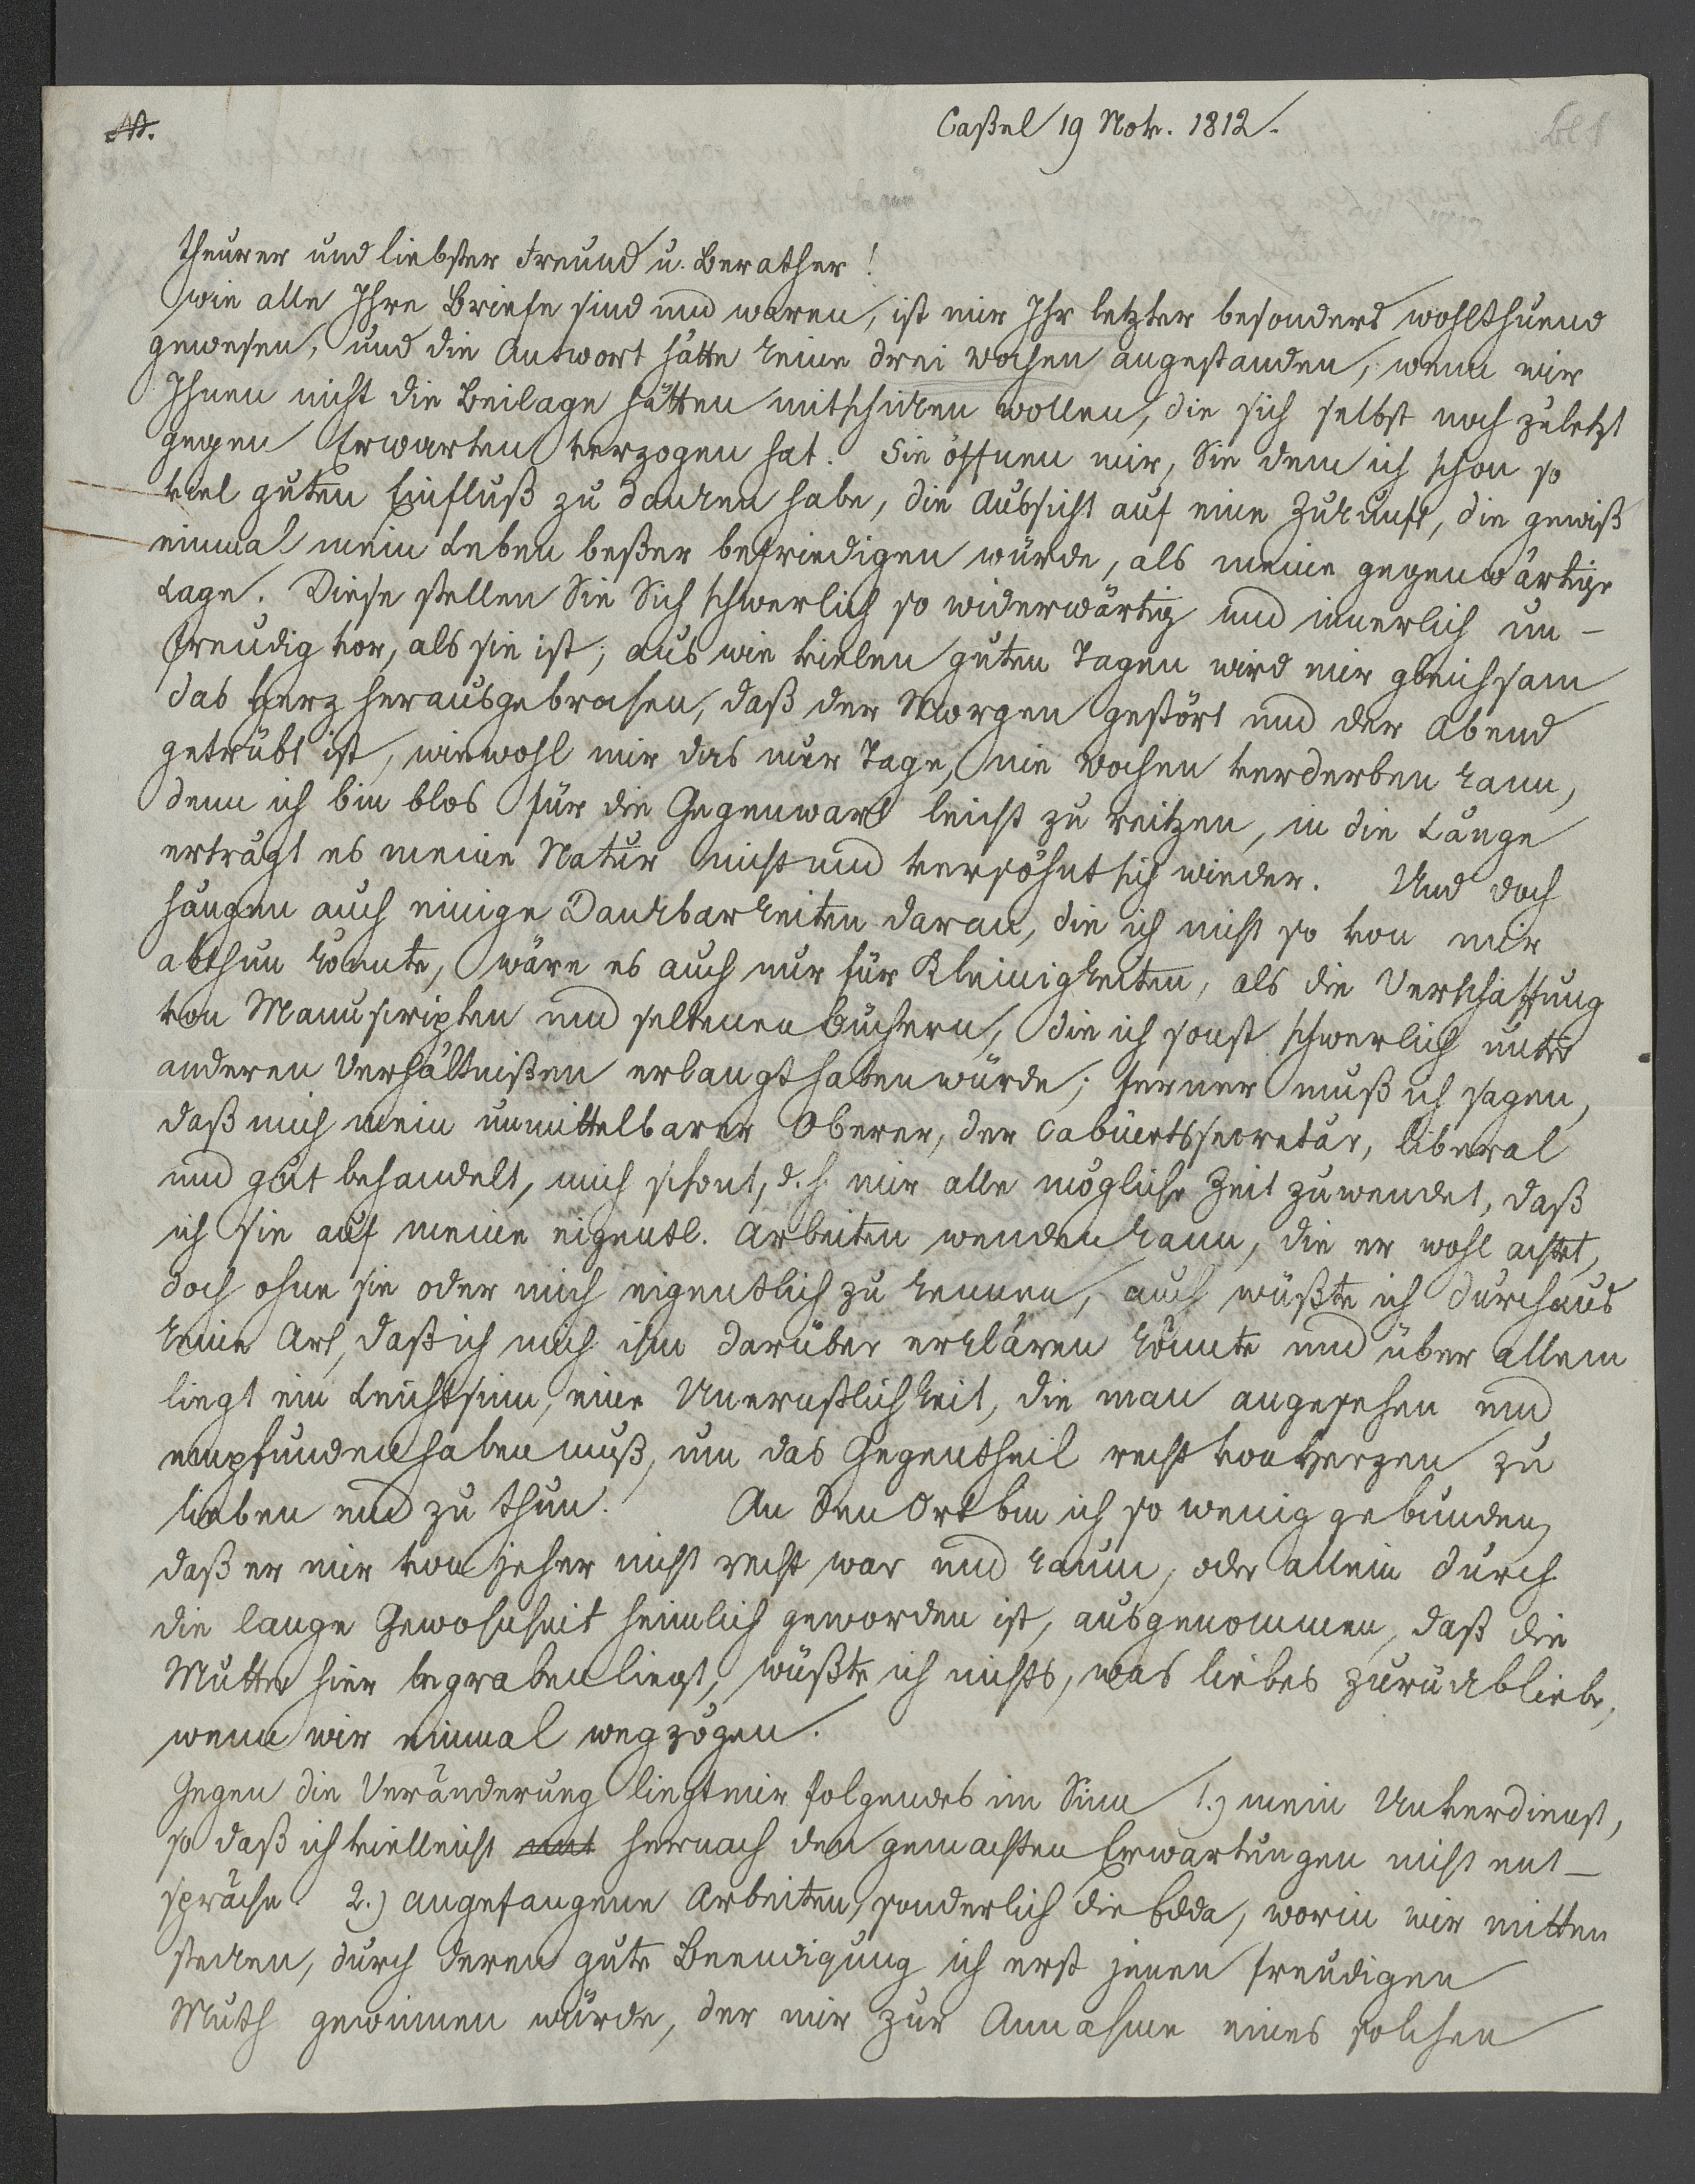 Caßel 19 Nov. 1812.
theurer und liebster Freund u. Berather!
wie alle Ihre Briefe sind und waren, ist mir Ihr letzter besonders wohlthuend
gewesen, und die Antwort hätte keine drei Wochen angestanden, wenn wir
Ihnen nicht die Beilage hätten mitschicken wollen, die sich selbst noch zuletzt
gegen Erwarten verzogen hat. Sie öffnen mir, Sie dem ich schon so
viel guten Einfluß zu danken habe, die Aussicht auf eine Zukunft, die gewiß
einmal mein Leben beßer befriedigen würde, als meine gegenwärtige
Lage. Diese stellen Sie Sich schwerlich so widerwärtig und innerlich un-
freudig vor, als sie ist; aus wie vielen guten Tagen wird mir gleichsam
das Herz herausgebrochen, daß der Morgen gestört und der Abend
getrübt ist, wiewohl mir das nur Tage, nie Wochen verderben kann,
denn ich bin blos für die Gegenwart leicht zu reitzen, in die Länge
erträgt es meine Natur nicht und versöhnt sich wieder. Und doch
hängen auch einige Dankbarkeiten daran, die ich nicht so von mir
abthun könnte, wäre es auch nur für Kleinigkeiten, als die Verschaffung
von Manuscripten und seltenen Büchern, die ich sonst schwerlich unter
anderen Verhältnißen erlangt haben würde; ferner muß ich sagen,
daß mich mein unmittelbarer Oberer, der Cabinetssecretär, liberal
und gut behandelt, mich schont, d. h. mir alle mögliche Zeit zuwendet, daß
ich sie auf meine eigentl. Arbeiten wenden kann, die er wohl achtet,
doch ohne sie oder mich eigentlich zu kennen, auch wüßte ich durchaus
keine Art, daß ich mich ihm darüber erklären könnte und über allem
liegt ein Leichtsinn, eine Unernstlichkeit, die man angesehen und
empfunden haben muß, um das Gegentheil recht von Herzen zu
lieben und zu thun. An den Ort bin ich so wenig gebunden,
daß er mir von jeher nicht recht war und kaum, oder allein durch
die lange Gewohnheit heimlich geworden ist, ausgenommen, daß die
Mutter hier begraben liegt, wüßte ich nichts, was liebes zurückbliebe,
wenn wir einmal wegzögen.
Gegen die Veränderung liegt mir folgendes im Sinn 1.) mein Unverdienst,
so daß ich vielleicht hernach den gemachten Erwartungen nicht ent-
spräche. 2.) angefangene Arbeiten, sonderlich die Edda, worin wir mitten
stecken, durch deren gute Beendigung ich erst jenen freudigen
Muth gewinnen würde, der mir zur Annahme eines solchen